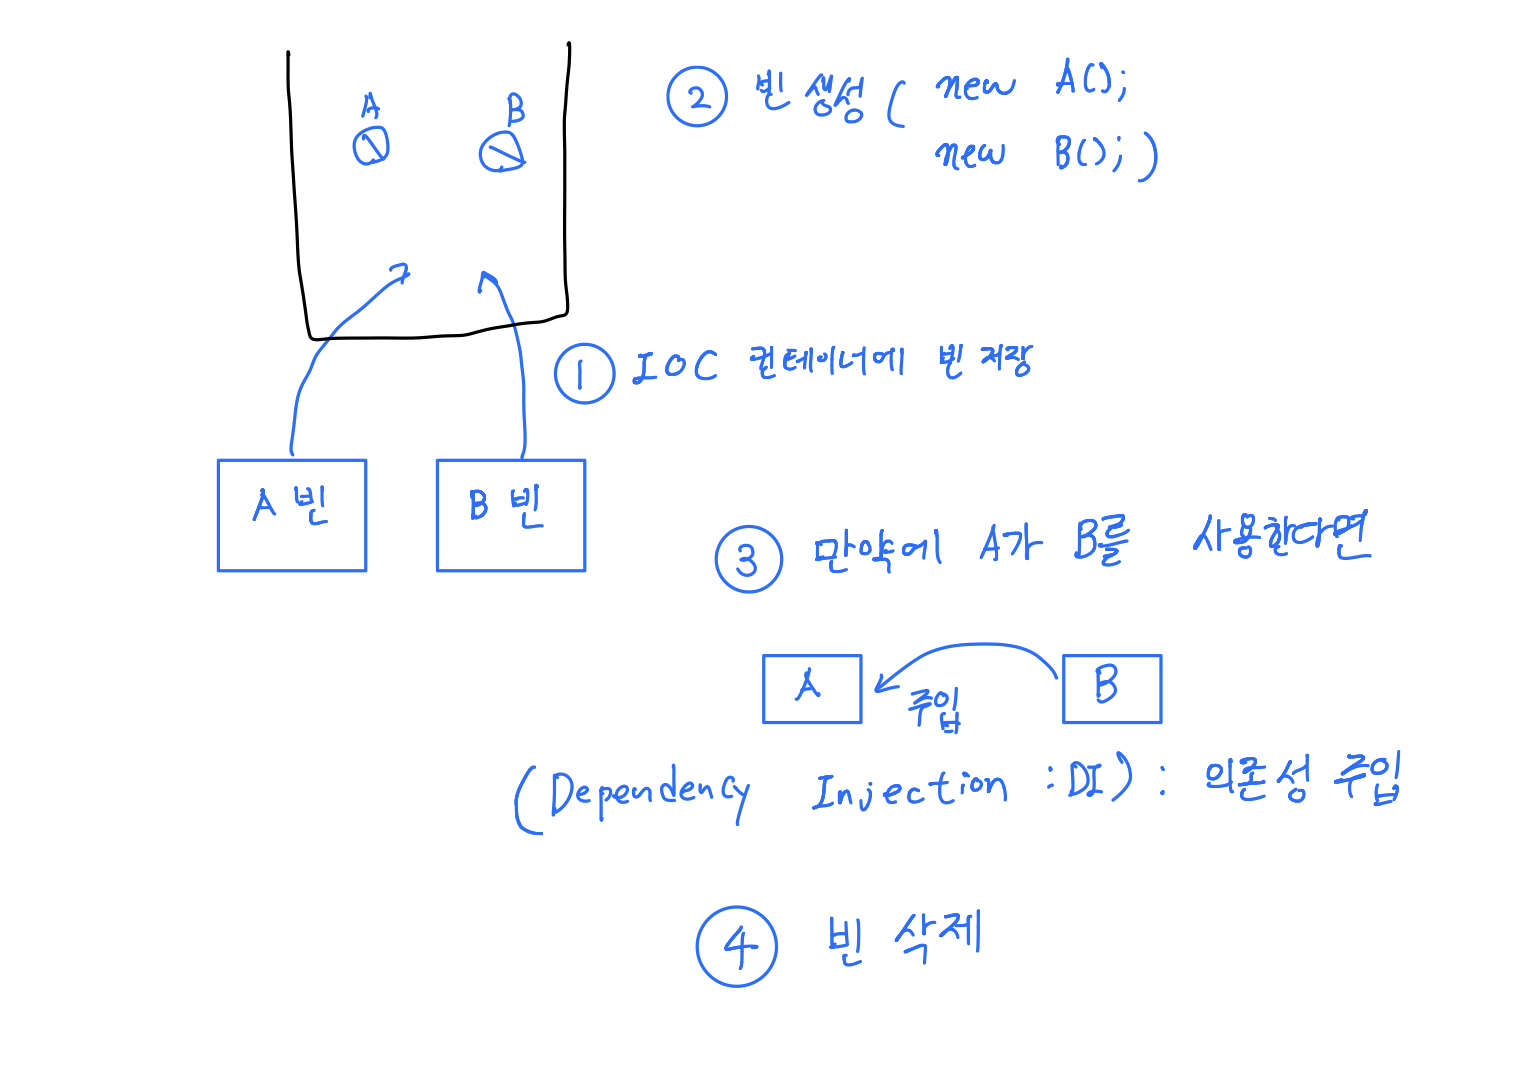 A B
② 빈 생성 ( new A();
new B(); )
① IOC 컨테이너에 빈 저장
A 빈
B 빈
③ 만약에 A가 B를 사용한다면
A 주입 B
(Dependency Injection : DI) : 의존성 주입
④ 빈 삭제